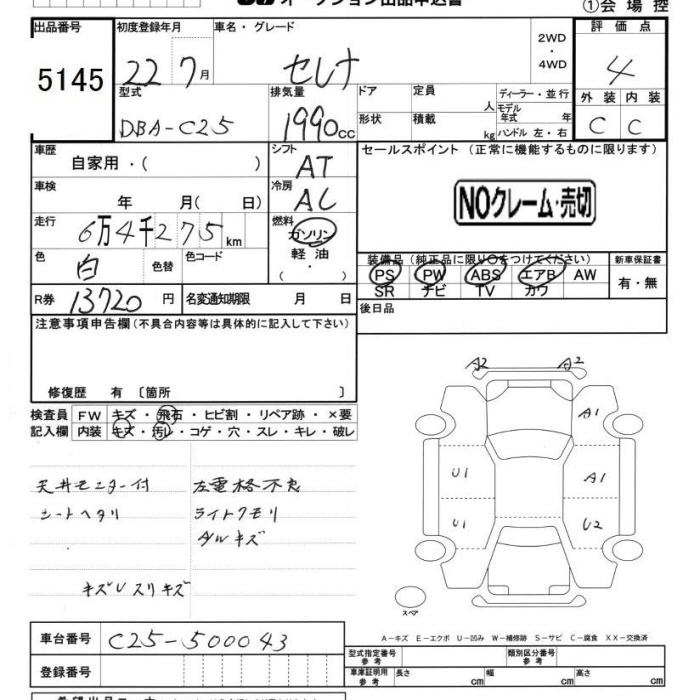 オークション出品申込書
①会場控
出品番号 初度登録年月 車名・グレード 2WD・4WD 評価点
5145 22 7月 セレナ 4
型式 排気量 ドア 定員 人 ディーラー・並行 外装 内装
DBA-C25 1990cc 形状 積載 kg モデル年式 年 ハンドル 左・右 C C
車歴 シフト セールスポイント(正常に機能するものに限ります)
自家用・( ) AT
車検 冷房
年 月( 日) AC NOクレーム・売切
走行 燃料
6万4千275km ガソリン
軽油
色 色替 色コード ・( ) 装備品(純正品に限り○をつけてください) 新車保証書
白 PS PW ABS エアB AW 有・無
R券 13720円 名変通知期限 月 日 SR ナビ TV カワ
注意事項申告欄(不具合内容等は具体的に記入して下さい) 後日品
修復歴 有〔箇所 〕
検査員 FW キズ・飛石・ヒビ割・リペア跡・×要
記入欄 内装 キズ・汚レ・コゲ・穴・スレ・キレ・破レ
A2 A2
A1
U1 A1
U1 U2
天井モニター付 左電格不良
シートヘタリ ライトクモリ
ダルキズ
キズUスリキズ
スペア
A-キズ E-エクボ U-凹み W-補修跡 S-サビ C-腐食 XX-交換済
車台番号 C25-500043
型式指定番号 参考 類別区分番号 参考
登録番号 車庫証明用 参考 長さ cm 幅 cm 高さ cm